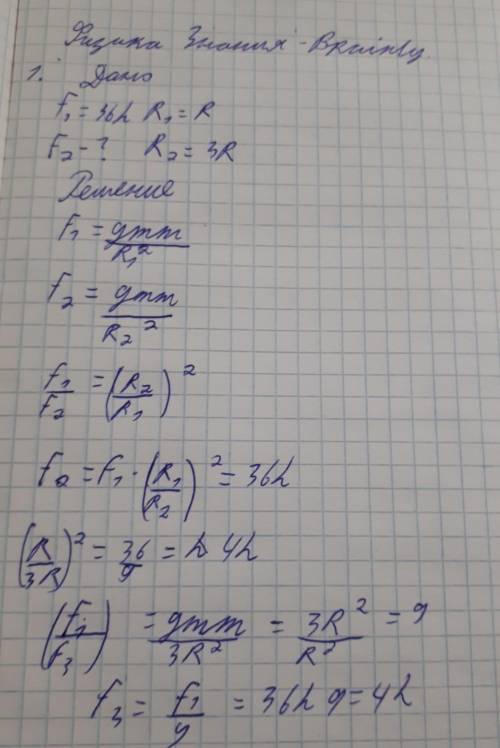 Физика Знания - Brainly.
1. Дано
F₁ = 36h R₁ = R
F₂ - ? R₂ = 3R
Решение
F₁ = gmm/R₁²
F₂ = gmm/R₂²
F₁/F₂ = (R₂/R₁)²
F₂ = F₁ · (R₁/R₂)² = 36h
(R/3R)² = 36/9 = 4h
(F₁/F₃) = gmm/3R² = 3R²/R² = 9
F₃ = F₁/9 = 36h 9 = 4h